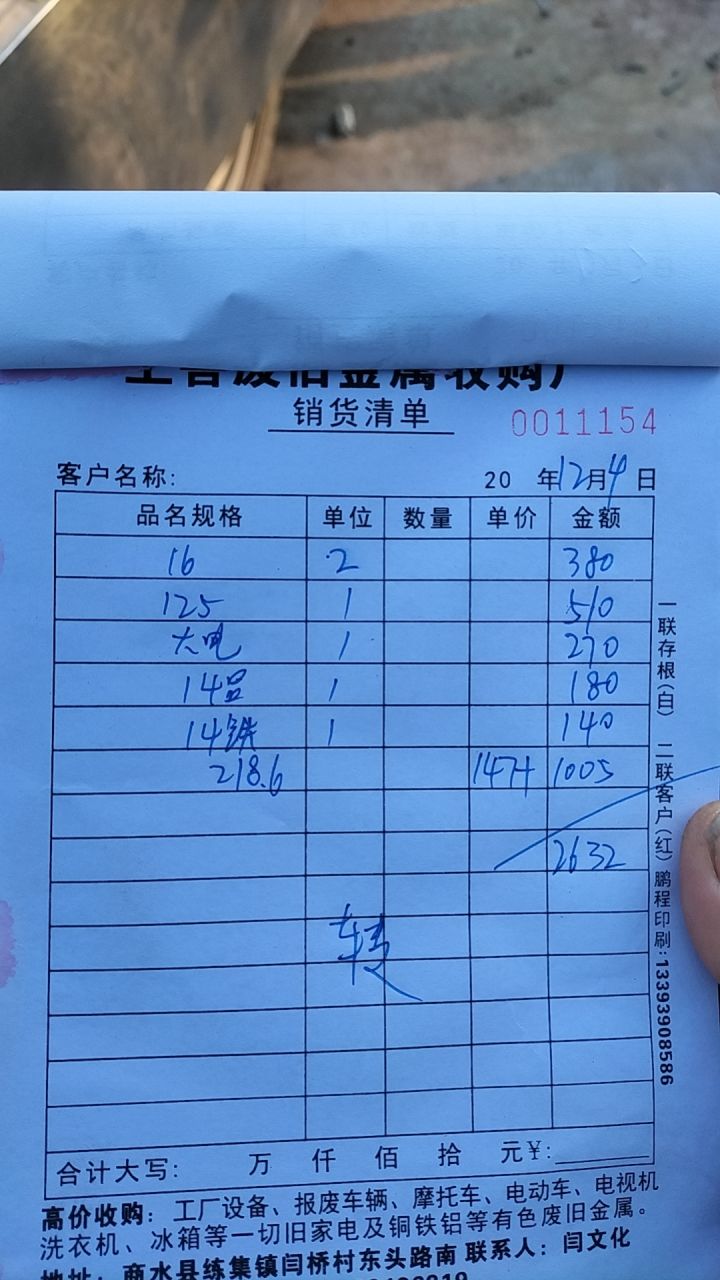 废旧金属收购厂
销货清单
0011154
客户名称: 20 年12月4日
品名规格 单位 数量 单价 金额
16 2 380
125 1 510
大电 1 270
14吕 1 180
14铁 1 140
218.6 1005
2632
转
合计大写: 万 仟 佰 拾 元¥:
一联存根(白) 二联客户(红) 鹏程印刷:13393908586
高价收购: 工厂设备、报废车辆、摩托车、电动车、电视机
洗衣机、冰箱等一切旧家电及铜铁铝等有色废旧金属。
地址: 商水县练集镇闫桥村东头路南 联系人: 闫文化